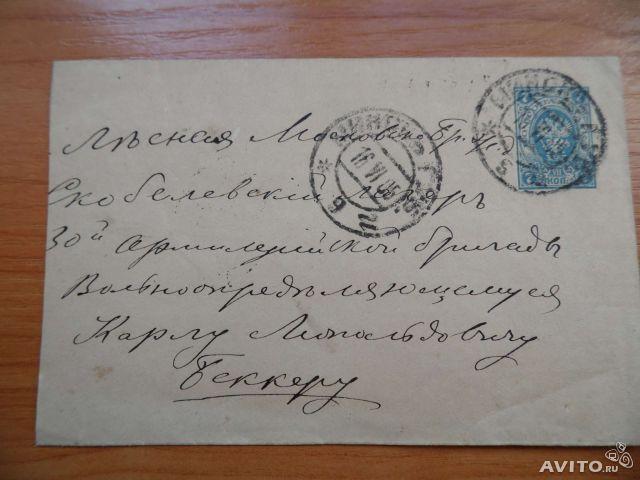 Лѣсная Московско-Бр
Скобелевскій лагерь
30й Артиллерійской бригады
Вольноопредѣляющемуся
Карлу Леопольдовичу
Беккеру
16 VI
7
AVITO.ru